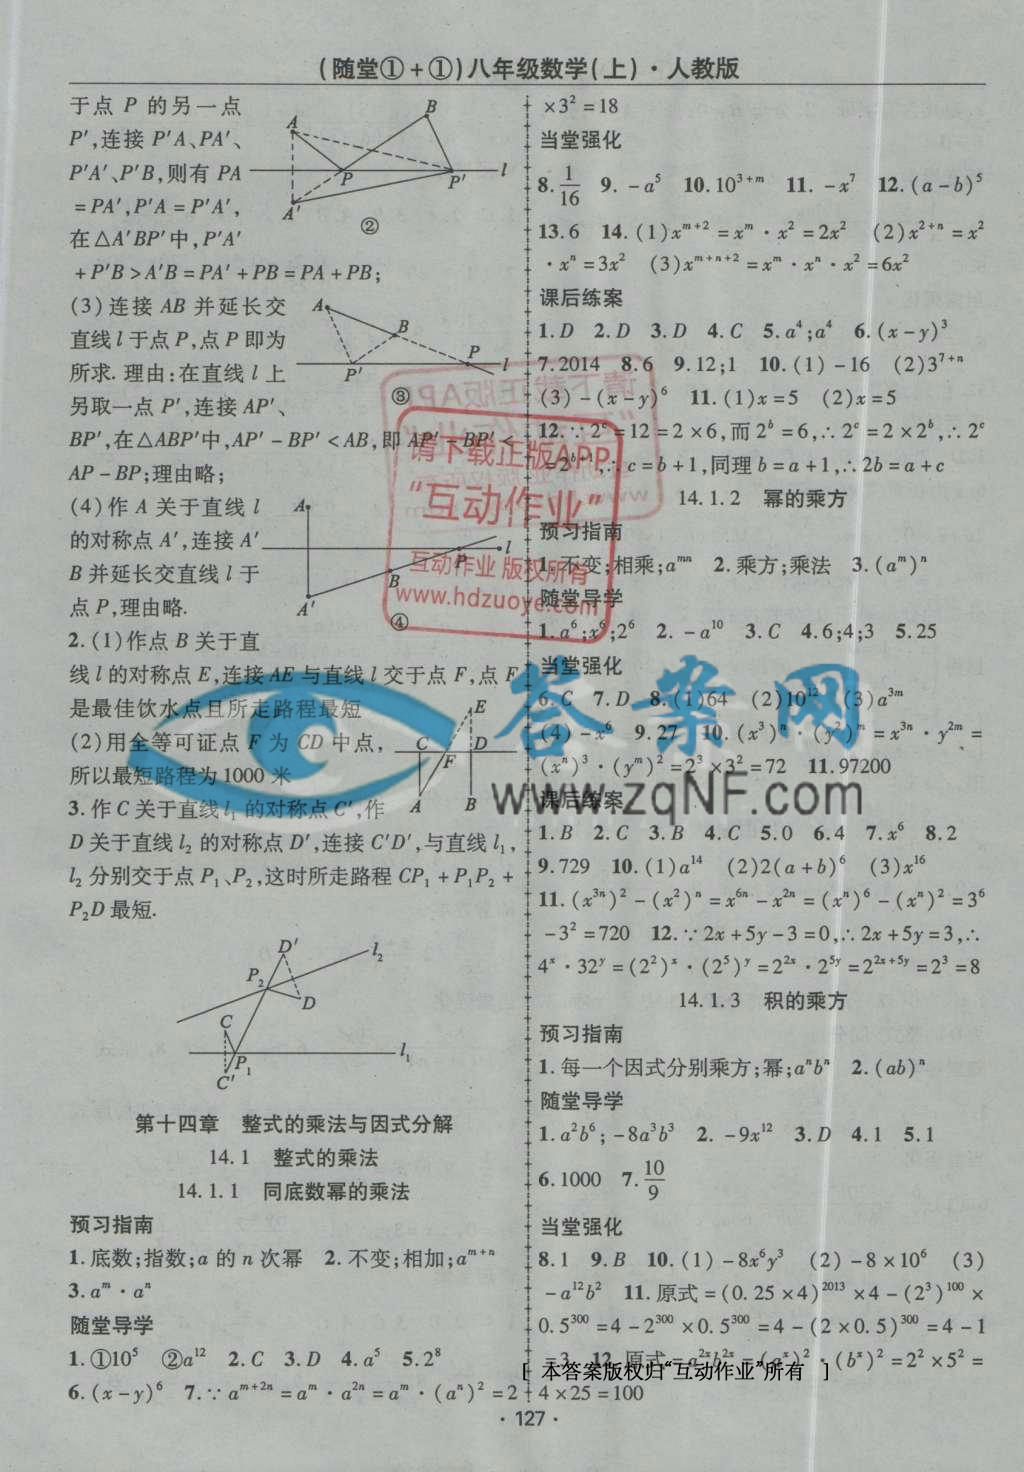 (随堂①+①)八年级数学(上)·人教版
于点 P 的另一点
P′,连接 P′A、PA′、
P′A′、P′B,则有 PA
=PA′,P′A=P′A′,
在△A′BP′中,P′A′
+P′B>A′B=PA′+PB=PA+PB;
A
B
P
P′
l
A′
②
(3)连接 AB 并延长交
直线 l 于点 P,点 P 即为
所求.理由:在直线 l 上
另取一点 P′,连接 AP′、
BP′,在△ABP′中,AP′-BP′<AB,即 AP′-BP′<
AP-BP;理由略;
A
B
P′
P
l
③
(4)作 A 关于直线 l
的对称点 A′,连接 A′
B 并延长交直线 l 于
点 P,理由略.
A
P
l
B
A′
④
2.(1)作点 B 关于直
线 l 的对称点 E,连接 AE 与直线 l 交于点 F,点 F
是最佳饮水点且所走路程最短
(2)用全等可证点 F 为 CD 中点,
所以最短路程为1000 米
E
C
D
F
A
B
3.作 C 关于直线 l₁ 的对称点 C′,作
D 关于直线 l₂ 的对称点 D′,连接 C′D′,与直线 l₁,
l₂ 分别交于点 P₁、P₂,这时所走路程 CP₁+P₁P₂+
P₂D 最短.
D′
l₂
P₂
D
C
P₁
l₁
C′
第十四章 整式的乘法与因式分解
14.1 整式的乘法
14.1.1 同底数幂的乘法
预习指南
1.底数;指数;a 的 n 次幂 2.不变;相加;a^{m+n}
3.a^m·a^n
随堂导学
1.①10⁵ ②a¹² 2.C 3.D 4.a⁵ 5.2⁸
6.(x-y)⁶ 7.∵a^{m+2n}=a^m·a^{2n}=a^m·(a^n)²=2
×3²=18
当堂强化
8.1/16 9.-a⁵ 10.10^{3+m} 11.-x⁷ 12.(a-b)⁵
13.6 14.(1)x^{m+2}=x^m·x²=2x² (2)x^{2+n}=x²
·x^n=3x² (3)x^{m+n+2}=x^m·x^n·x²=6x²
课后练案
1.D 2.D 3.D 4.C 5.a⁴;a⁴ 6.(x-y)³
7.2014 8.6 9.12;1 10.(1)-16 (2)3^{7+n}
(3)-(x-y)⁶ 11.(1)x=5 (2)x=5
12.∵2^c=12=2×6,而2^b=6,∴2^c=2×2^b,∴2^c
=2^{b+1},∴c=b+1,同理 b=a+1,∴2b=a+c
14.1.2 幂的乘方
预习指南
1.不变;相乘;a^{mn} 2.乘方;乘法 3.(a^m)^n
随堂导学
1.a⁶;x⁶;2⁶ 2.-a¹⁰ 3.C 4.6;4;3 5.25
当堂强化
6.C 7.D 8.(1)64 (2)10¹² (3)a^{3m}
(4)-x⁶ 9.27 10.(x³)^n·(y²)^m=x^{3n}·y^{2m}=
(x^n)³·(y^m)²=2³×3²=72 11.97200
课后练案
1.B 2.C 3.B 4.C 5.0 6.4 7.x⁶ 8.2
9.729 10.(1)a¹⁴ (2)2(a+b)⁶ (3)x¹⁶
11.(x^{3n})²-(x²)^n=x^{6n}-x^{2n}=(x^n)⁶-(x^n)²=3⁶
-3²=720 12.∵2x+5y-3=0,∴2x+5y=3,∴
4^x·32^y=(2²)^x·(2⁵)^y=2^{2x}·2^{5y}=2^{2x+5y}=2³=8
14.1.3 积的乘方
预习指南
1.每一个因式分别乘方;幂;a^nb^n 2.(ab)^n
随堂导学
1.a²b⁶;-8a³b³ 2.-9x¹² 3.D 4.1 5.1
6.1000 7.10/9
当堂强化
8.1 9.B 10.(1)-8x⁶y³ (2)-8×10⁶ (3)
-a¹²b² 11.原式=(0.25×4)²⁰¹³×4-(2³)¹⁰⁰×
0.5³⁰⁰=4-2³⁰⁰×0.5³⁰⁰=4-(2×0.5)³⁰⁰=4-1
=3 12.原式=a^{2x}b^{2x}=(a^x)²·(b^x)²=2²×5²=
4×25=100
[ 本答案版权归“互动作业”所有 ]
·127·
请下载正版APP
“互动作业”
互动作业 版权所有
www.hdzuoye.com
答案网
www.zqNF.com